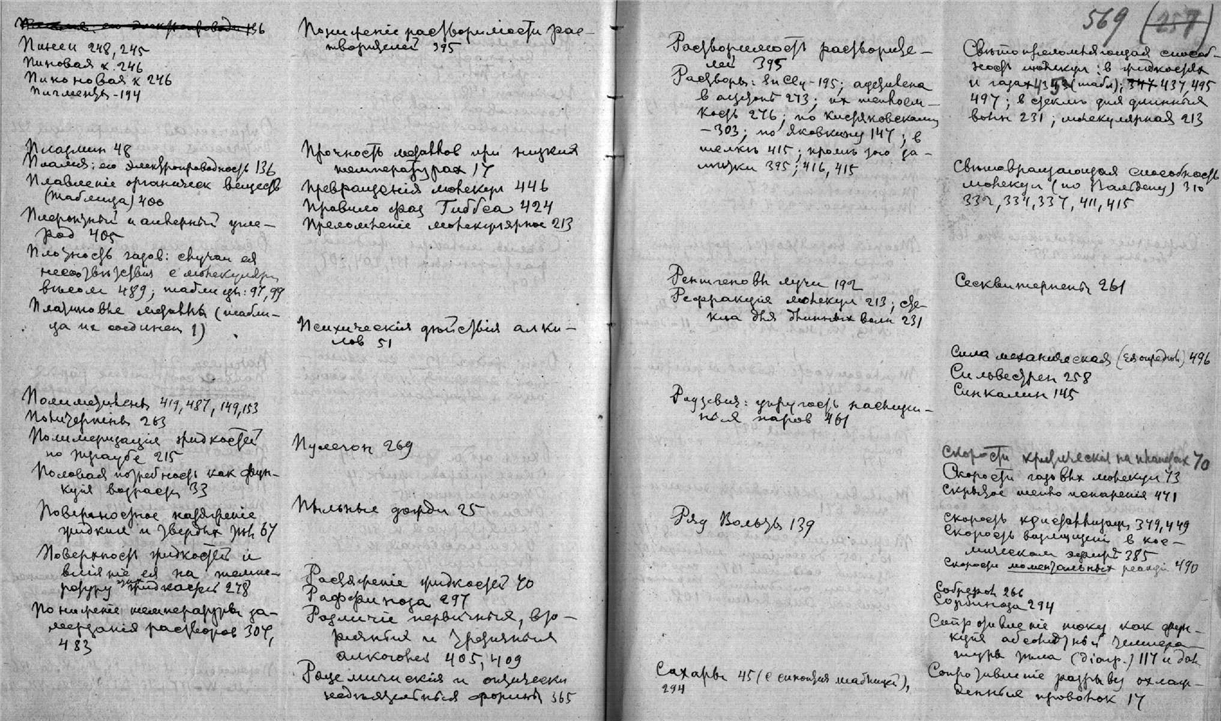 569 (257)
136
Пинен 248, 245
Пиновая к. 246
Пиноновая к 246
Пигменты - 194
Плазмин 48
Пламя: его электропроводность 136
Плавленіе органическ веществ
(таблица) 400
угле-
род 405
Плотность газов: случаи ея
несоответствія с молекулярн
весом 489; таблицы: 97, 99
Платиновые металлы (табли-
ца их соединен 1)
Полиметилены 419, 487, 149, 153
Политерпены 263
Полимеризація жидкостей
по Траубе 215
Половая потребность как функ-
ція возраста 33
Поверхностное натяженіе
жидких и твердых тѣл 67
Поверхность жидкостей и
вліяніе ея на темпе-
ратуру жидкостей 278
Пониженіе температуры за-
мерзанія растворов 304,
483
Пониженіе растворимости рас-
творителей 395
Прочность металлов при низких
температурах 17
Превращенія молекул 446
Правило фаз Гиббса 424
Преломленіе молекулярное 213
Психическія дѣйствія алки-
лов 51
Пулегон 269
Пыльные дожди 25
Растяженіе жидкостей 40
Раффиноза 297
Различіе первичных, вто-
ричных и третичных
алкоголей 405, 409
Рацемическія и оптически
недѣятельныя формы 365
Растворимость растворите-
лей 395
Растворы: в 195; ацетилена
в ацетоне 273; их теплоем-
кость 276; по Кистяковскому
-303; по Яковкину 147; в
щелках 415; кромѣ того за-
мѣтки 395; 416, 415
Рентгеновы лучи 192
Рефракція молекул 213; сте-
кла для длинных волн 231
упругость насыщен-
ных паров 461
Ряд Вольта 139
Сахары 45 (с синтезом таблица),
294
Светопреломляющая способ-
ность молекул: в жидкостях
и газах (табл.); 437, 495
497; в стекле для длинных
волн 231; молекулярная 213
Свѣтовращающая способность
молекул (по Вальдену) 310
332, 334, 337, 411, 415
Сесквитерпены 261
Сила механическая 496
Сильвестрен 258
Синкалин 145
Скорости критическія на планетах 70
Скорости газовых молекул 73
Скрытое тепло испаренія 471
Скорость кристаллизаціи 349, 449
Скорость вращенія в кос-
мическом эфире 385
Скорости моментальных реакцій 490
Собрерол 266
Сорбиноза 294
Сопротивленіе току как функ-
ція абсолютной темпера-
туры тѣла (діагр.) 117 и дал
Сопротивленіе разрыву охлаж-
денных проволок 17